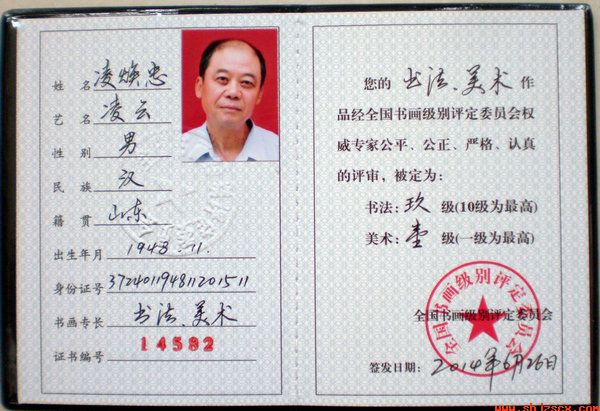 姓名 凌焕忠
艺名 凌云
性别 男
民族 汉
籍贯 山东
出生年月 1948.11.
身份证号 372401194811201511
书画专长 书法、美术
证书编号 14582
您的 书法、美术 作
品经全国书画级别评定委员会权
威专家公平、公正、严格、认真
的评审，被定为：
书法：玖 级(10级为最高)
美术：壹 级(一级为最高)
全国书画级别评定委员会
全国书画级别评定委员会
签发日期：2014年6月26日